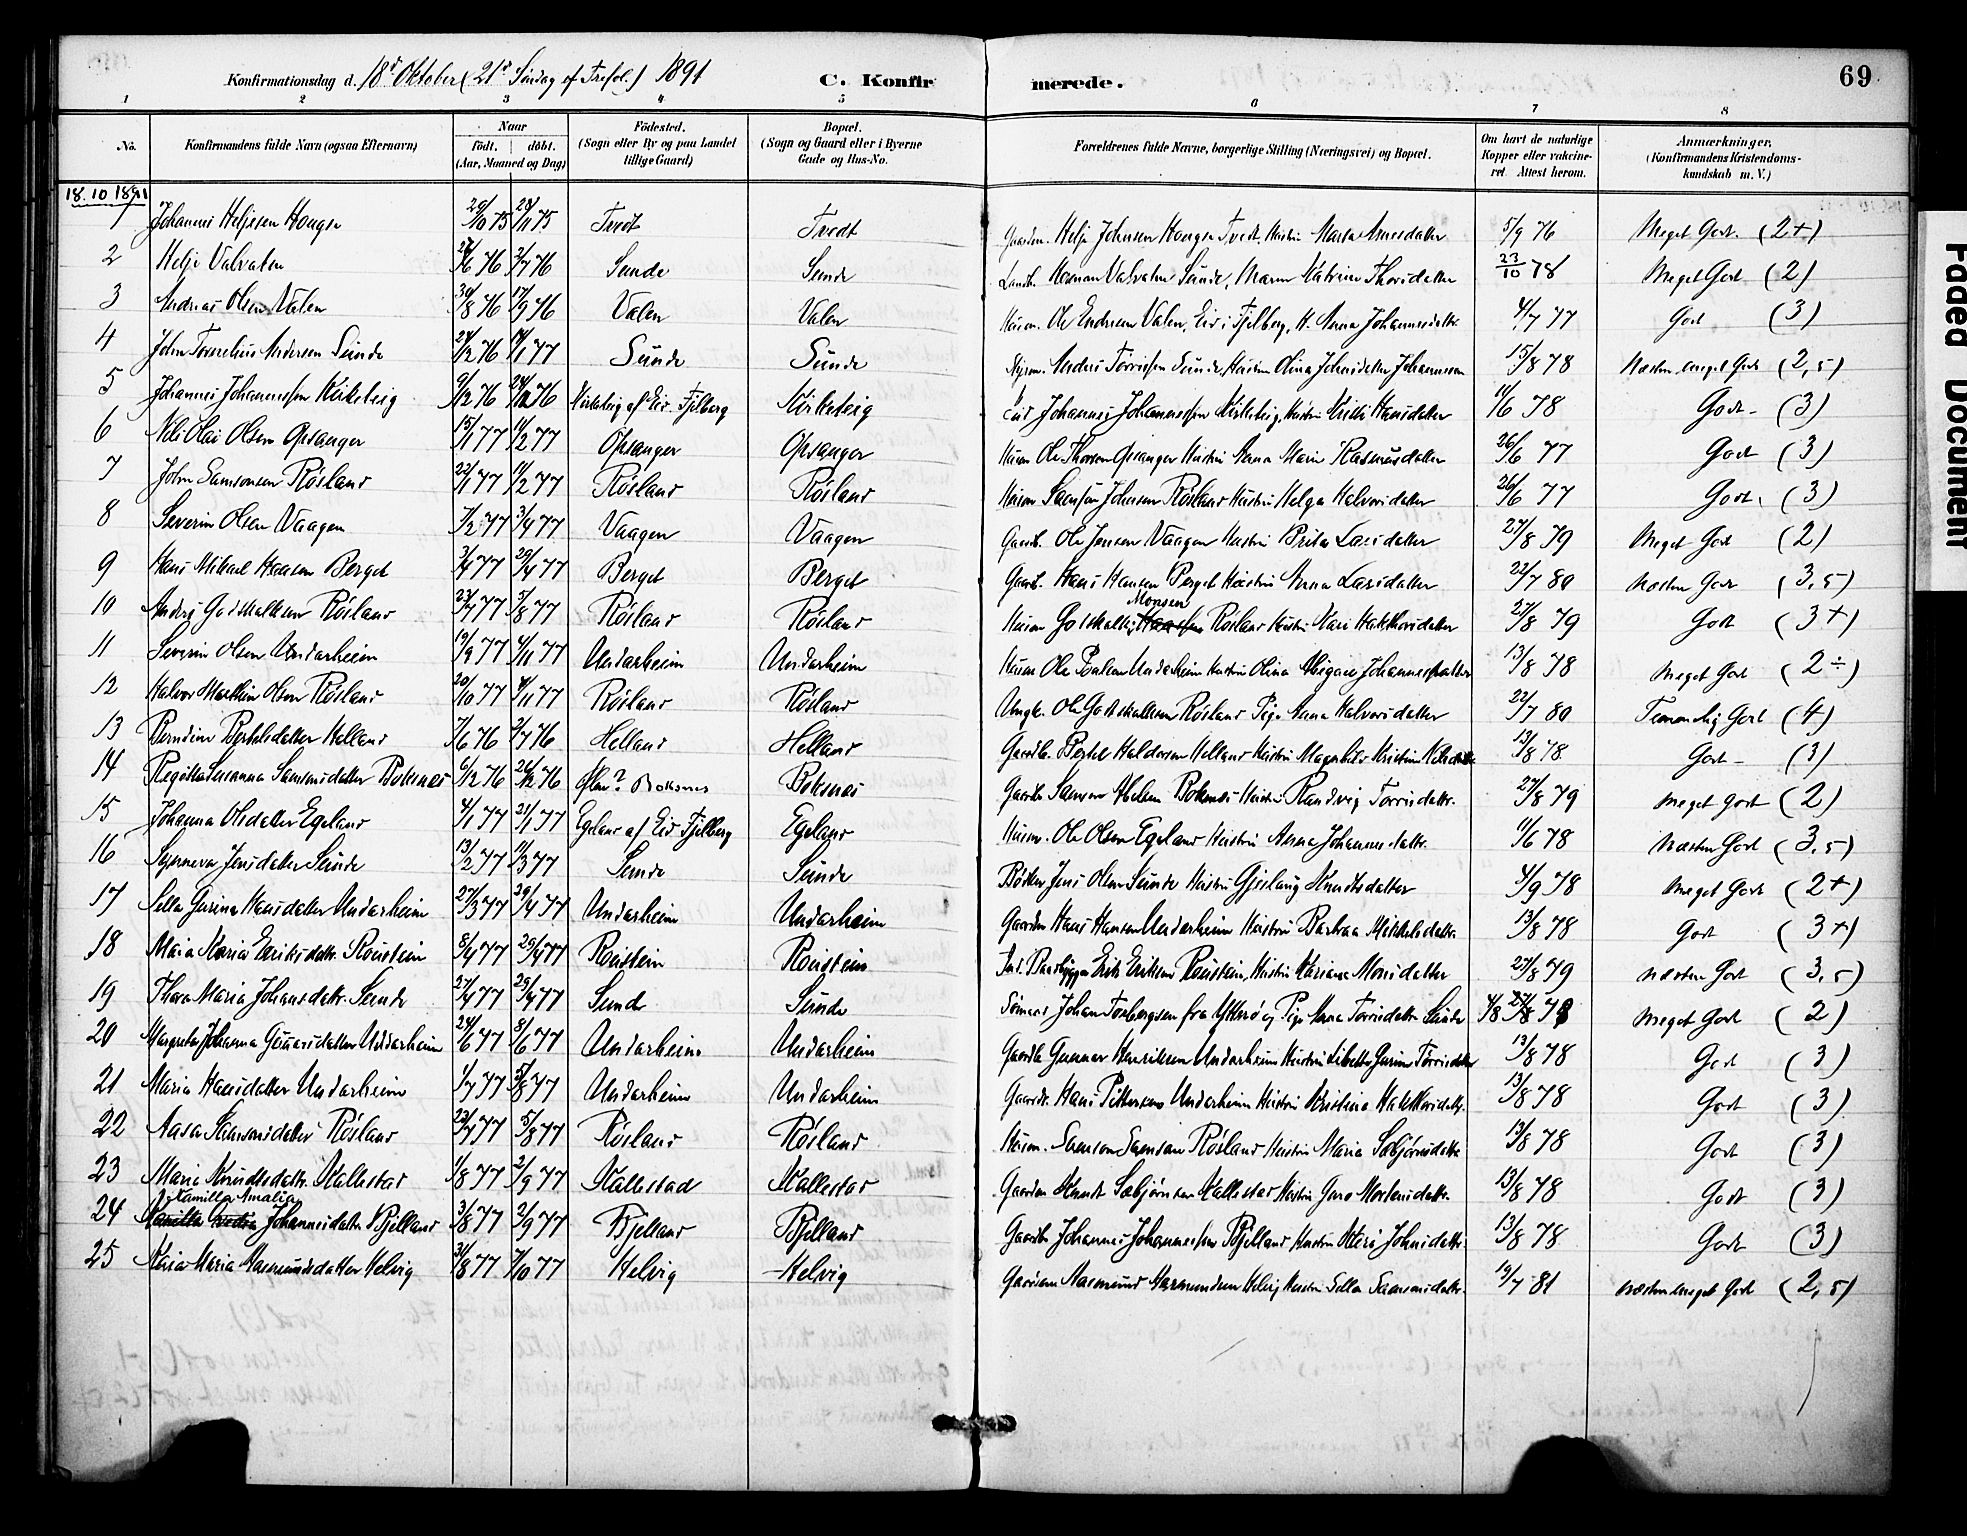 Konfirmationsdag d. 18d Oktober (21d Søndag ef Trefol.) 1891 C. Konfirmerede. 69
1 2 3 4 5 6 7 8
No. Konfirmandens fulde Navn (ogsaa Efternavn) Naar født. døbt. (Aar, Maaned og Dag) Fødested. (Sogn eller By og paa Landet tillige Gaard) Bopæl. (Sogn og Gaard eller i Byerne Gade og Hus-No. Forældrenes fulde Navne, borgerlige Stilling (Næringsvei) og Bopæl. Om havt de naturlige Kopper eller vakcineret. Attest herom. Anmærkninger, (Konfirmandens Kristendomskundskab m. V.)
18.10 1891
1 Johannes Heljesen Hougen 29/10 75 28/11 75 Tvedt Tvedt Helje Johnsen Hougen Tvedt, Hustru Marta 5/9 76 Meget Godt. (2+)
2 Helje Valvatn 76 2/7 76 Sunde Sunde Valvatn Sunde, Maren Katrine Thorsdatter 23/10 78 Meget Godt (2)
3 Andreas Olsen Valen 30/8 76 17/9 76 Valen Valen Husm. Ole Endresen Valen, Eid i Fjelberg, H. Anna Johannesdatter 4/7 77 Godt (3)
4 John Tornelius Andersen Sunde 76 77 Sunde Sunde Anders Torrissen Sunde, Hustru Olina Johnsdatter 15/8 78 Næsten meget Godt (2,5)
5 Johannes Johannessen Kirketeig 9/12 76 24/12 76 Kirketeig af Eid Fjelberg Kirketeig Johannes Johannessen Kirketeig, Hustru Hansdatter 11/6 78 Godt - (3)
6 Nils Olai Olsen Opsanger 15/1 77 11/2 77 Opsanger Opsanger Husm Ole Thorsen Opsanger Hustru Anna Marie Rasmusdatter 26/6 77 Godt (3)
7 John Samsonsen Røsland 22/1 77 11/2 77 Røsland Røsland Husm Samson Johnsen Røsland Hustru Helga Halvorsdatter 26/6 77 Godt. (3)
8 Severin Olsen Vaagen 7/2 77 3/4 77 Vaagen Vaagen Gaardb. Ole Jensen Vaagen Hustru Brita Larsdatter 27/8 79 Meget Godt (2)
9 Hans Mikael Hansen Berget 3/4 77 29/4 77 Berget Berget Gaardb. Hans Hansen Berget Hustru Anna Larsdatter 22/7 80 Næsten Godt (3,5)
10 Anders Godskalksen Røsland 23/7 77 5/8 77 Røsland Røsland Husm Godskalk Monsen Røsland Hustru Kari Halvorsdatter 27/8 79 Godt (3+)
11 Severin Olsen Undarheim 19/9 77 4/11 77 Undarheim Undarheim Husm Ole Poulsen Undarheim Hustru Olina Abigael Johannesdatter 13/8 78 Meget Godt (2÷)
12 Halvor Martin Olsen Røsland 20/10 77 4/11 77 Røsland Røsland Ungk. Ole Godskalksen Røsland Pige Anna Halvorsdatter 22/7 80 Temmelig Godt (4)
13 Berndine Bertelsdatter Helland 7/6 76 2/7 76 Helland Helland Gaardb Bertel Haldorsen Helland Hustru Magnhild Kristine Nilsdatter 13/8 78 Godt - (3)
14 Regitta Susanna Samsonsdatter Boksnes 6/12 76 26/12 76 Ølen? Boksnes Boksnes Gaardb Samson Boksnes Hustru Randvig Torrisdatr. 27/8 79 Meget Godt (2)
15 Johanna Olsdatter Egeland 4/1 77 21/1 77 Egeland af Eid Fjelberg Egeland Husm. Ole Olsen Egeland Hustru Anna Johannesdatr. 11/6 78 Næsten Godt (3,5)
16 Synneva Jensdatter Sunde 13/2 77 11/3 77 Sunde Sunde Bødker Jens Olsen Sunde Hustru Gjeslaug Knudsdatter 4/9 78 Meget Godt (2+)
17 Sella Gurina Hansdatter Undarheim 27/3 77 29/4 77 Undarheim Undarheim Gaardm Hans Hansen Undarheim Hustru Barbra Mikkelsdatr. 13/8 78 Godt (3+)
18 Maria Eriksdatr. Roustein 8/4 77 29/4 77 Roustein Roustein Erik Eriksen Roustein, Hustru Mariane Monsdatter 27/8 79 Næsten Godt (3,5)
19 Thora Maria Johansdatr. Sunde 27/4 77 29/4 77 Sunde Sunde Sømand Johan Torbergsen fra og Pige Anna Torrisdatr. Sunde 78 Meget Godt (2)
20 Margreta Johanna Gunnarsdatter Undarheim 24/6 77 8/6 77 Undarheim Undarheim Gaardb Gunnar Henriksen Undarheim Hustru Gurine Torrisdatter 13/8 78 Godt (3)
21 Maria Hansdatter Undarheim 1/7 77 5/8 77 Undarheim Undarheim Gaardb. Hans Pettersen Undarheim Hustru Kristina 13/8 78 Godt (3)
22 Aasa Samsonsdatter Røsland 23/7 77 5/8 77 Røsland Røsland Husm. Samson Samsonsen Røsland Hustru Maria Sæbjørnsdatr 13/8 78 Godt (3)
23 Maria Knudsdatr. Kallestad 1/8 77 2/9 77 Kallestad Kallestad Gaardm Knut Sæbjørnsen Kallestad Hustru Guro Mortensdatr. 13/8 78 Godt (3)
24 Kamilla Amalia Johannesdatter Bjelland 3/8 77 2/9 77 Bjelland Bjelland Gaardb Johannes Johannessen Bjelland Hustru Johnsdatr. 13/8 78 Godt (3)
25 Maria Aasmundsdatter Helvig 31/8 77 7/10 77 Helvig Helvig Aasmund Aasmundsen Helvig Hustru Sella Samsonsdatr. 19/7 81 Næsten meget Godt (2,5)
Faded Document